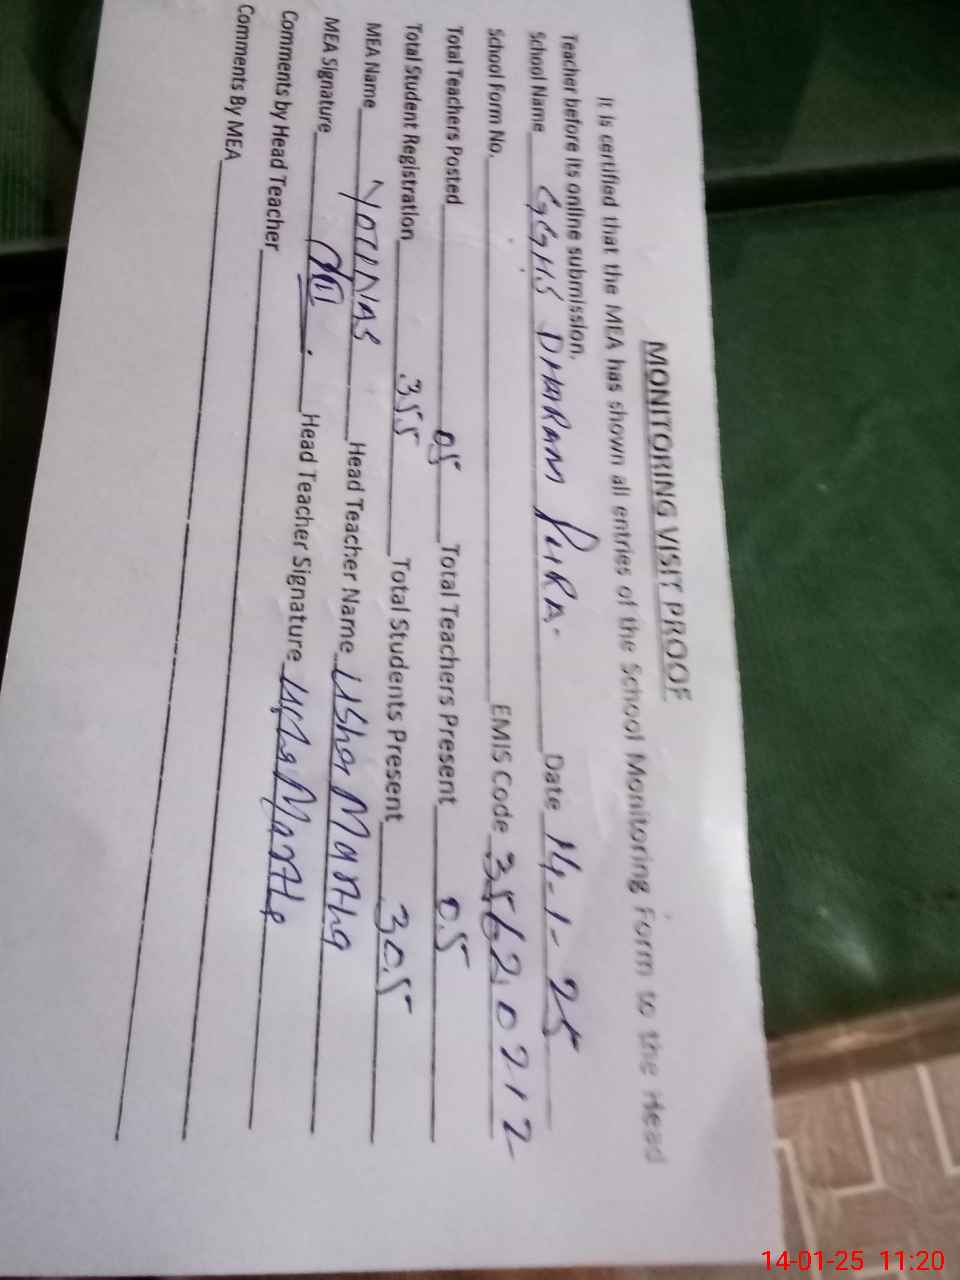 MONITORING VISIT PROOF
It is certified that the MEA has shown all entries of the School Monitoring Form to the Head
Teacher before its online submission.
School Name GGHS DHARAM PURA. Date 14-1-25
School Form No. EMIS Code 35620212
Total Teachers Posted 05 Total Teachers Present 05
Total Student Registration 355 Total Students Present 305
MEA Name Head Teacher Name Usha Martha
MEA Signature Head Teacher Signature
Comments by Head Teacher
Comments By MEA
14-01-25 11:20